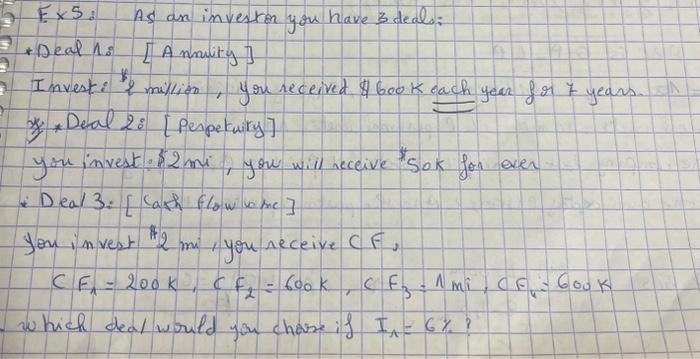 Ex 5: As an investor you have 3 deals:
* Deal 1: [Annuity]
Invest: $2 million, you received $600K each year for 7 years.
* Deal 2: [Perpetuity]
you invest: $2 mi, you will receive $50K for ever
* Deal 3: [Cash flow]
you invest $2 mi, you receive CF,
CF1 = 200K, CF2 = 600K, CF3 = 1 mi, CF4 = 600K
which deal would you choose if I1 = 6% ?